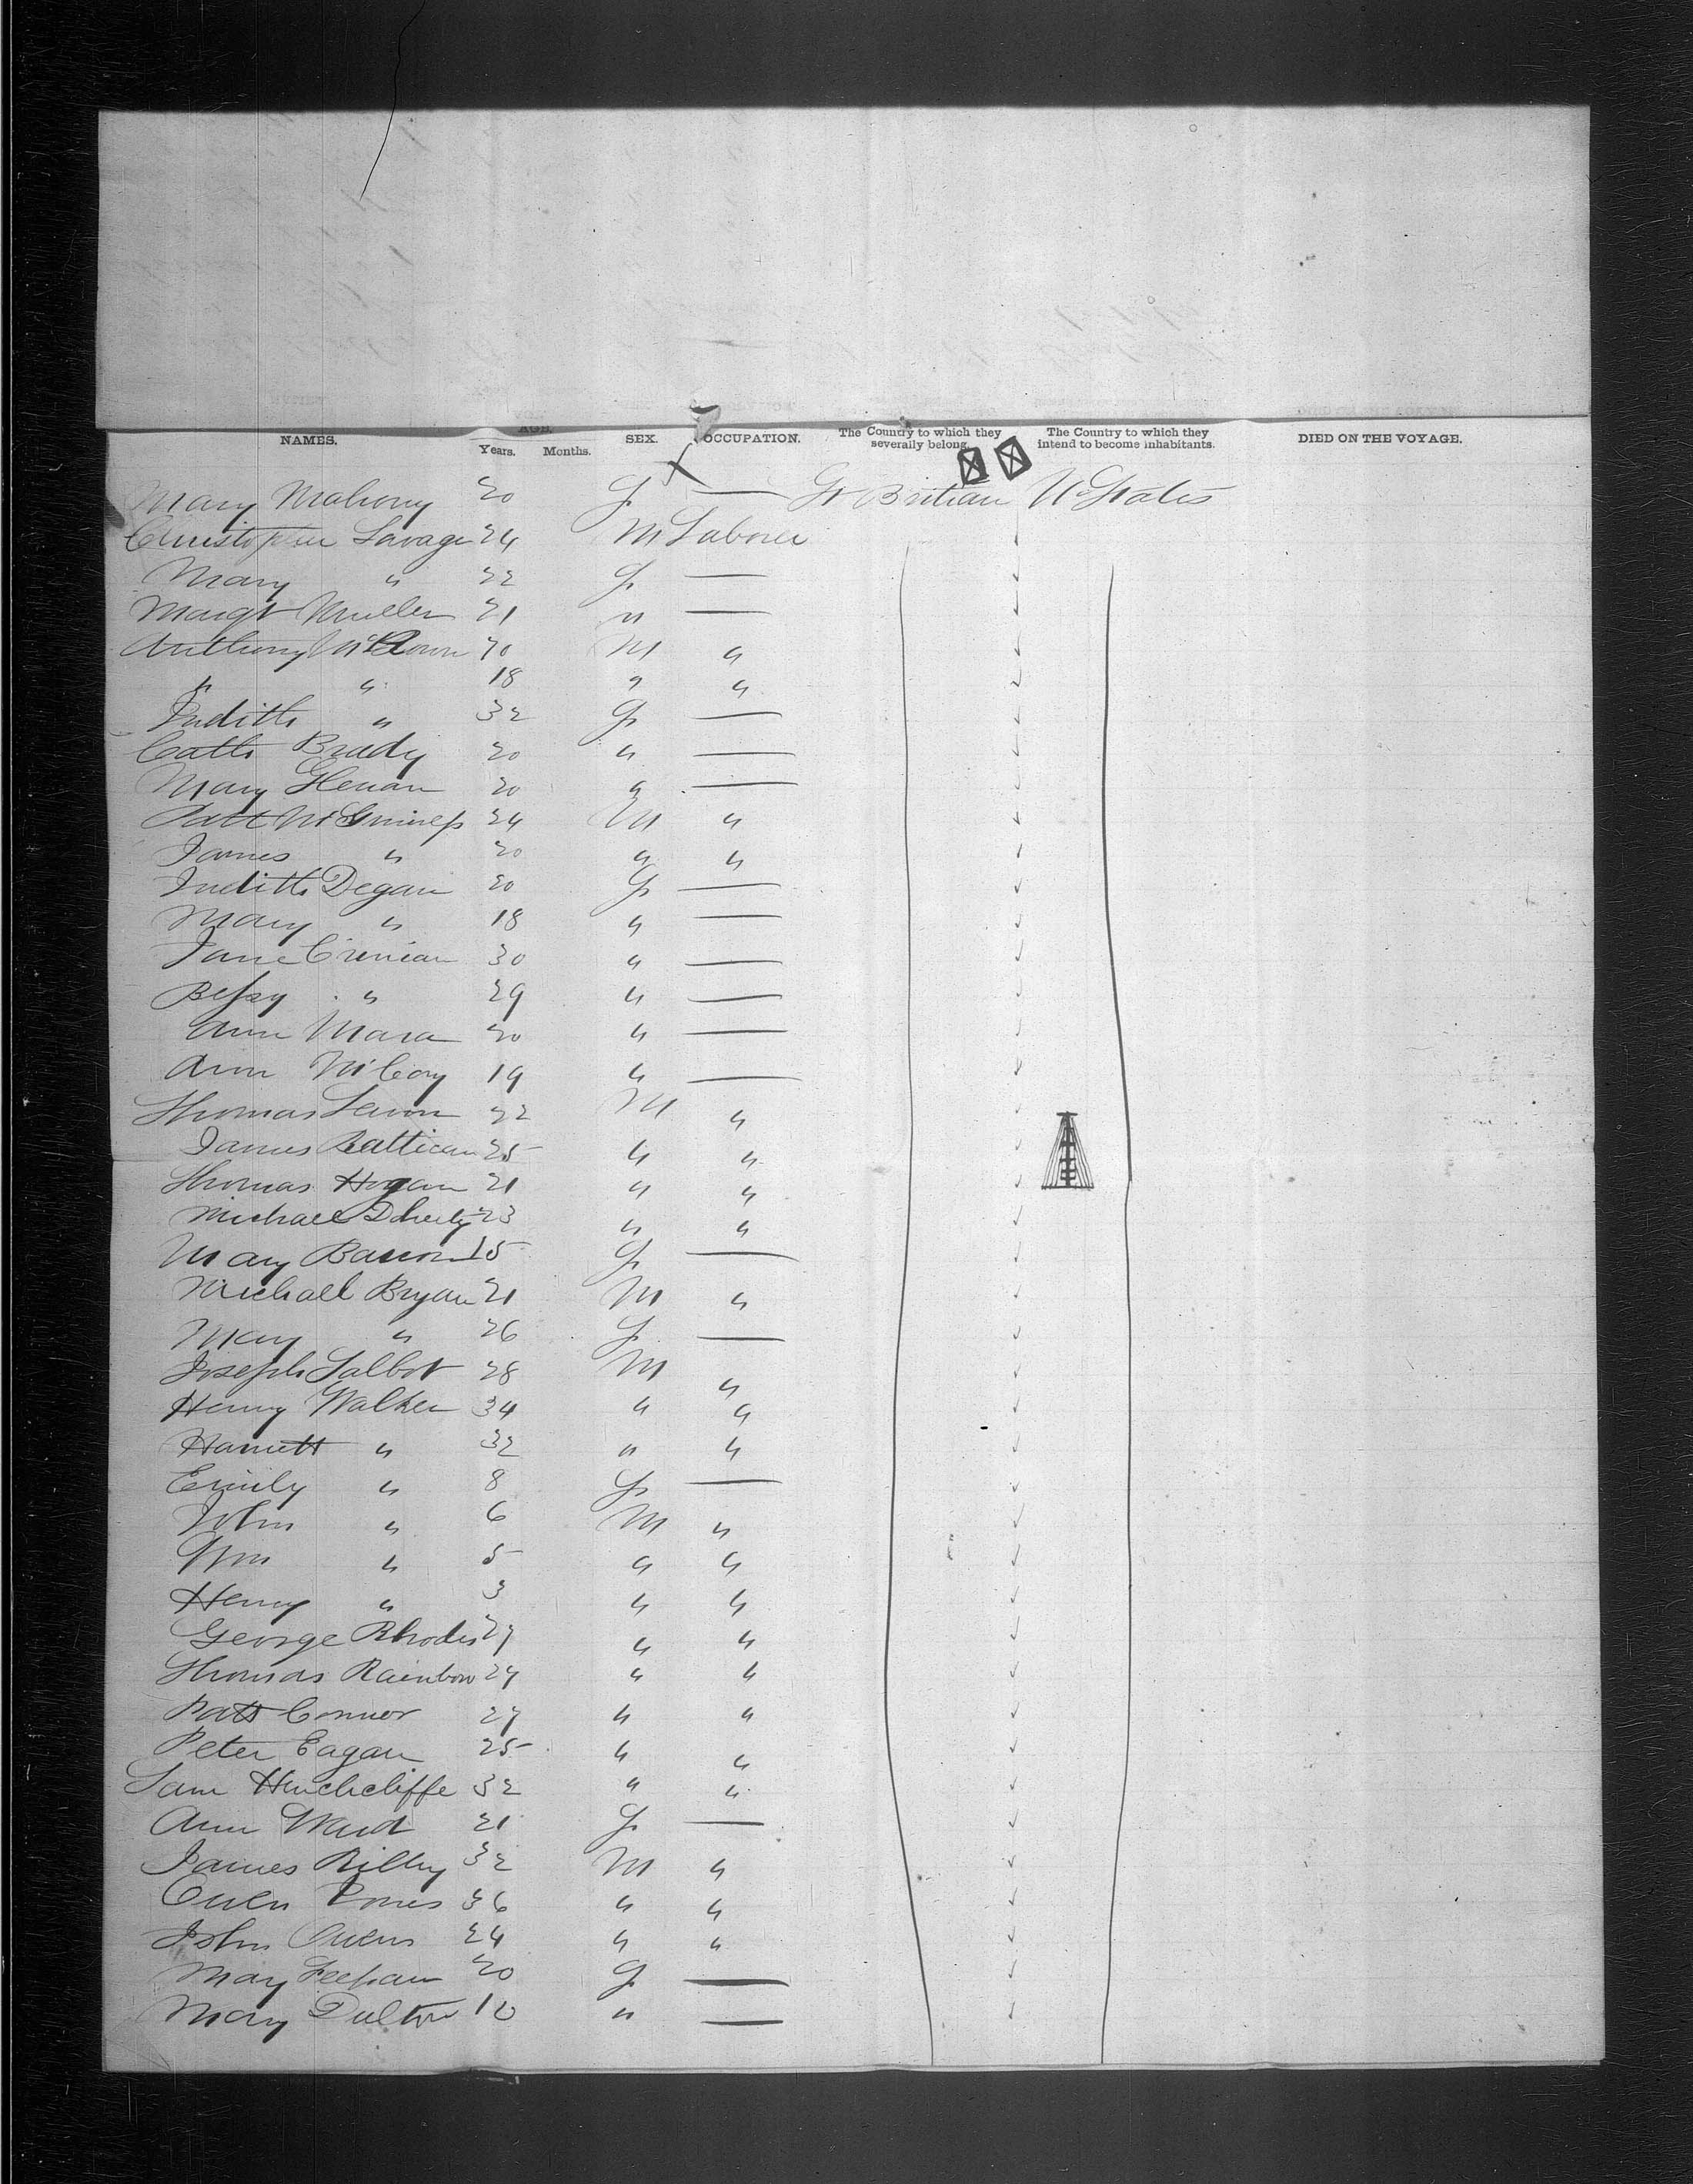 NAMES. AGE. Years. Months. SEX. OCCUPATION. The Country to which they severally belong. The Country to which they intend to become inhabitants. DIED ON THE VOYAGE.
Mary Mahony 20 F — Gt Britian U States
Christopher Savage 24 M Laborer
Mary " 22 F —
Margt Muller 21 " —
Anthony 70 M "
" " 18 " "
Judith " 32 F —
Cath Brady 20 " —
Mary 20 " —
Patt McGuiness 24 M "
James " 20 " "
Judith Degan 20 F —
Mary " 18 " —
Jane 30 " —
Bessy " 29 " —
Ann Mara 20 " —
Ann McCoy 19 " —
Thomas 22 M "
James 25 " "
Thomas Hogan 21 " "
Michael Dherty 23 " "
Mary Barron 15 F —
Michall Bryan 21 M "
Mary " 26 F —
Joseph Talbot 28 M "
Henry Walker 34 " "
Harriett " 32 " "
Emily " 8 F —
John " 6 M "
Wm " 5 " "
Henry " 3 " "
George Rhodes 27 " "
Thomas Rainbow 24 " "
Patt Connor 27 " "
Peter Eagan 25 " "
Sam Hinchcliffe 32 " "
Ann Ward 21 F —
James Rilley 32 M "
Owen Jones 36 " "
John Owens 24 " "
Mary 20 F —
Mary Dulton 10 " —